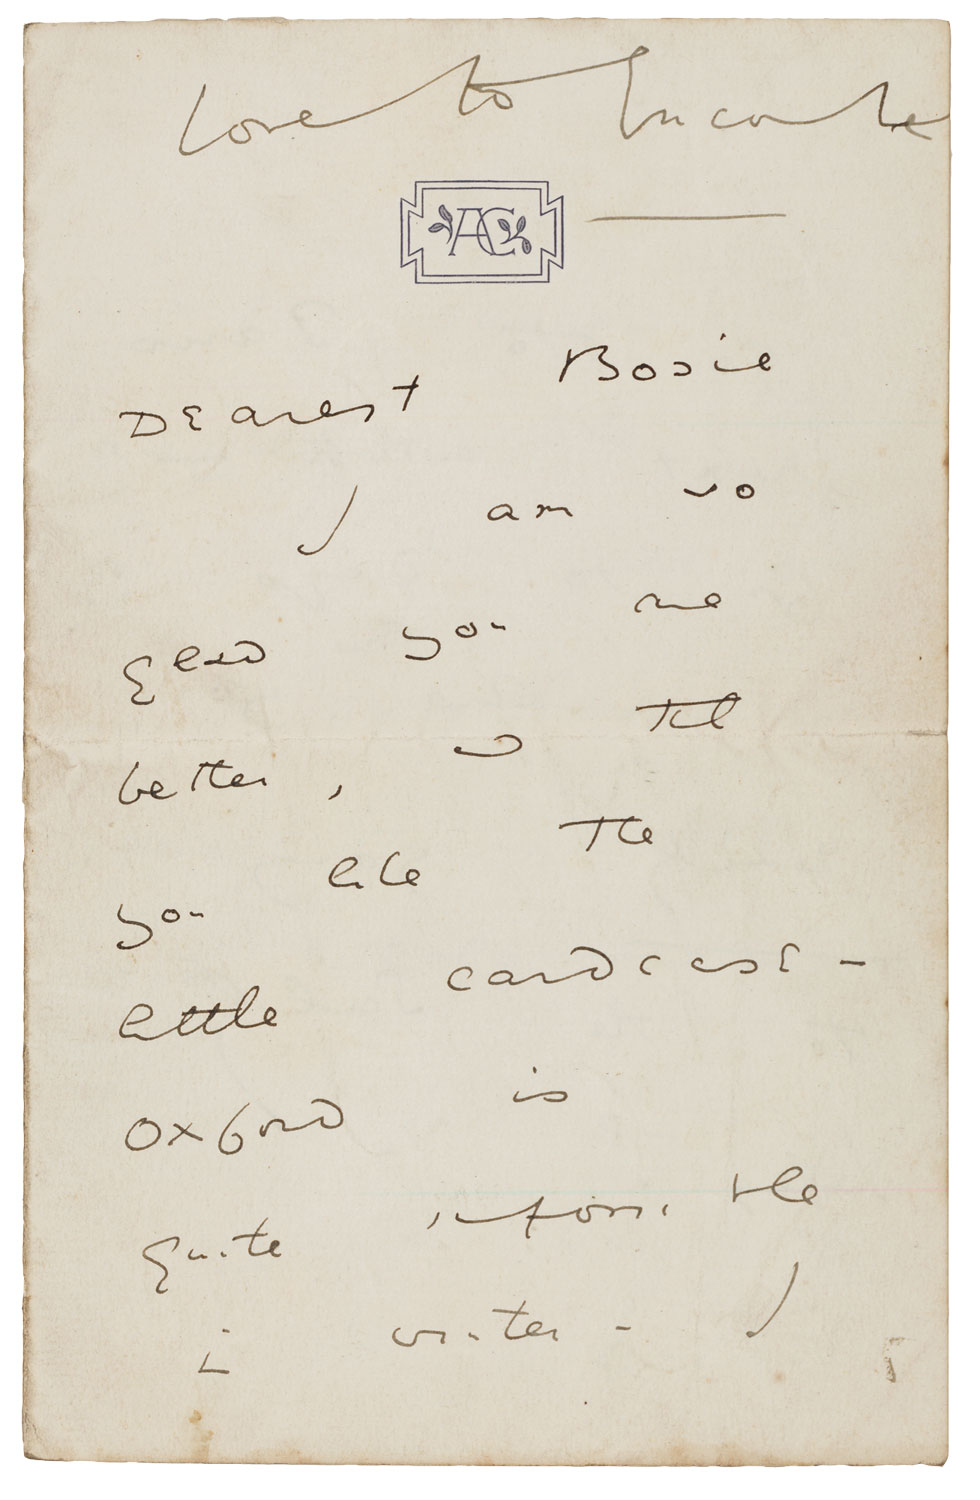 Love to Encombe
AC
Dearest Bosie
I am so
glad you are
better, and that
you like the
little cardcase –
Oxford is
quite impossible
in winter – I